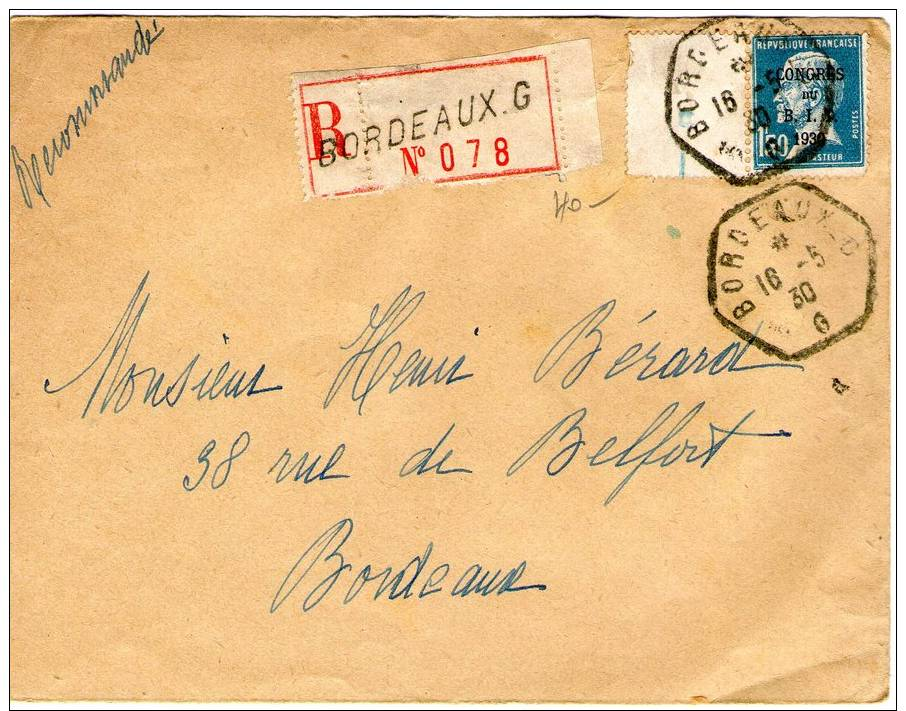 Recommandé
R
BORDEAUX.G
N° 078
BORDEAUX
16 -5
30
G
REPUBLIQUE FRANÇAISE
CONGRES
DU
B. I. T.
1930
1F50
POSTES
PASTEUR
40 –
BORDEAUX-G
16 -5
30
G
Monsieur Henri Bérard
38 rue de Belfort
Bordeaux